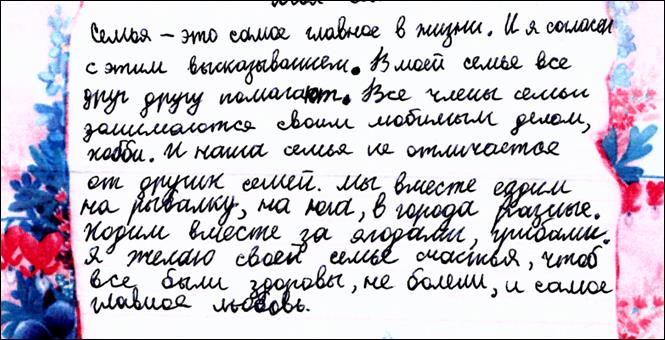 Семья – это самое главное в жизни. И я согласен
с этим высказыванием. В моей семье все
друг другу помагают. Все члены семьи
занимаются своим любимым делом,
хобби. И наша семья не отличается
от других семей. Мы вместе ездим
на рыбалку, на юга, в города разные.
Ходим вместе за ягодами, грибами.
Я желаю своей семье счастья, чтоб
все были здоровы, не болели, и самое
главное любовь.